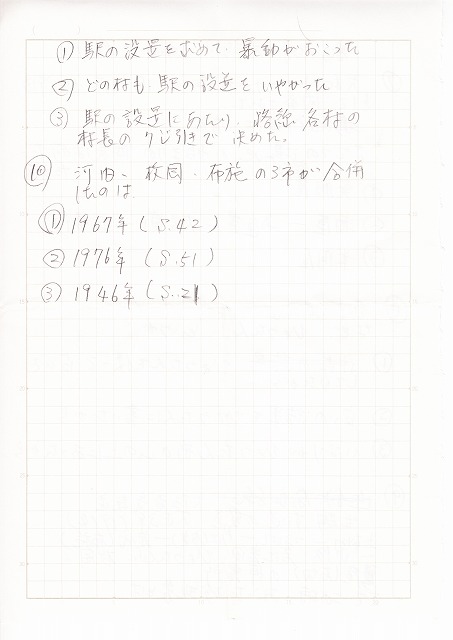 ① 駅の設置を求めて、暴動がおこった
② どの村も、駅の設置をいやがった
③ 駅の設置にあたり、路線各村の
村長のクジ引きで決めた。
⑩ 河内、枚岡、布施の3市が合併
したのは
① 1967年(S.42)
② 1976年(S.51)
③ 1946年(S.21)